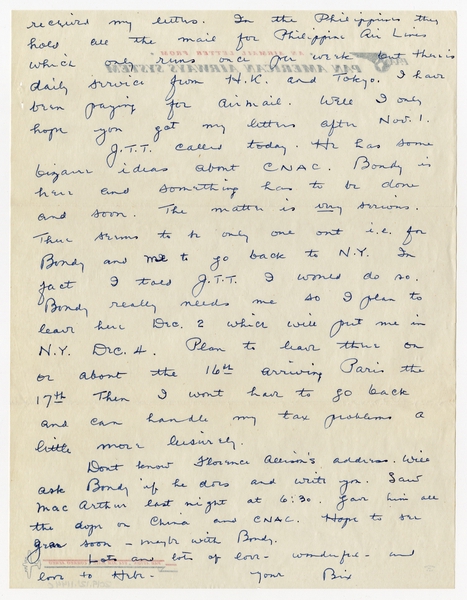 received my letters. In the Philippines they
hold all the mail for Philippine Air Lines
which only runs once per week but there is
daily service from H.K. and Tokyo. I have
been paying for airmail. Well I only
hope you got my letters after Nov. 1.
J.T.T. called today. He has some
bizarre ideas about CNAC. Bondy is
here and something has to be done
and soon. The matter is very serious.
There seems to be only one out i.e. for
Bondy and me to go back to N.Y. In
fact I told J.T.T. I would do so.
Bondy really needs me so I plan to
leave here Dec. 2 which will put me in
N.Y. Dec. 4. Plan to leave there on
or about the 16th arriving Paris the
17th Then I wont have to go back
and can handle my tax problems a
little more leisurely.
Dont know Florence Allison's address. Will
ask Bondy if he does and write you. Saw
Mac Arthur last night at 6:30. Gave him all
the dope on China and CNAC. Hope to see
soon - maybe with Bondy.
Lots and lots of love - wonderful - and
love to Hebe - your Bix
AN AIRMAIL LETTER FROM
PAN AMERICAN AIRWAYS SYSTEM
PAA